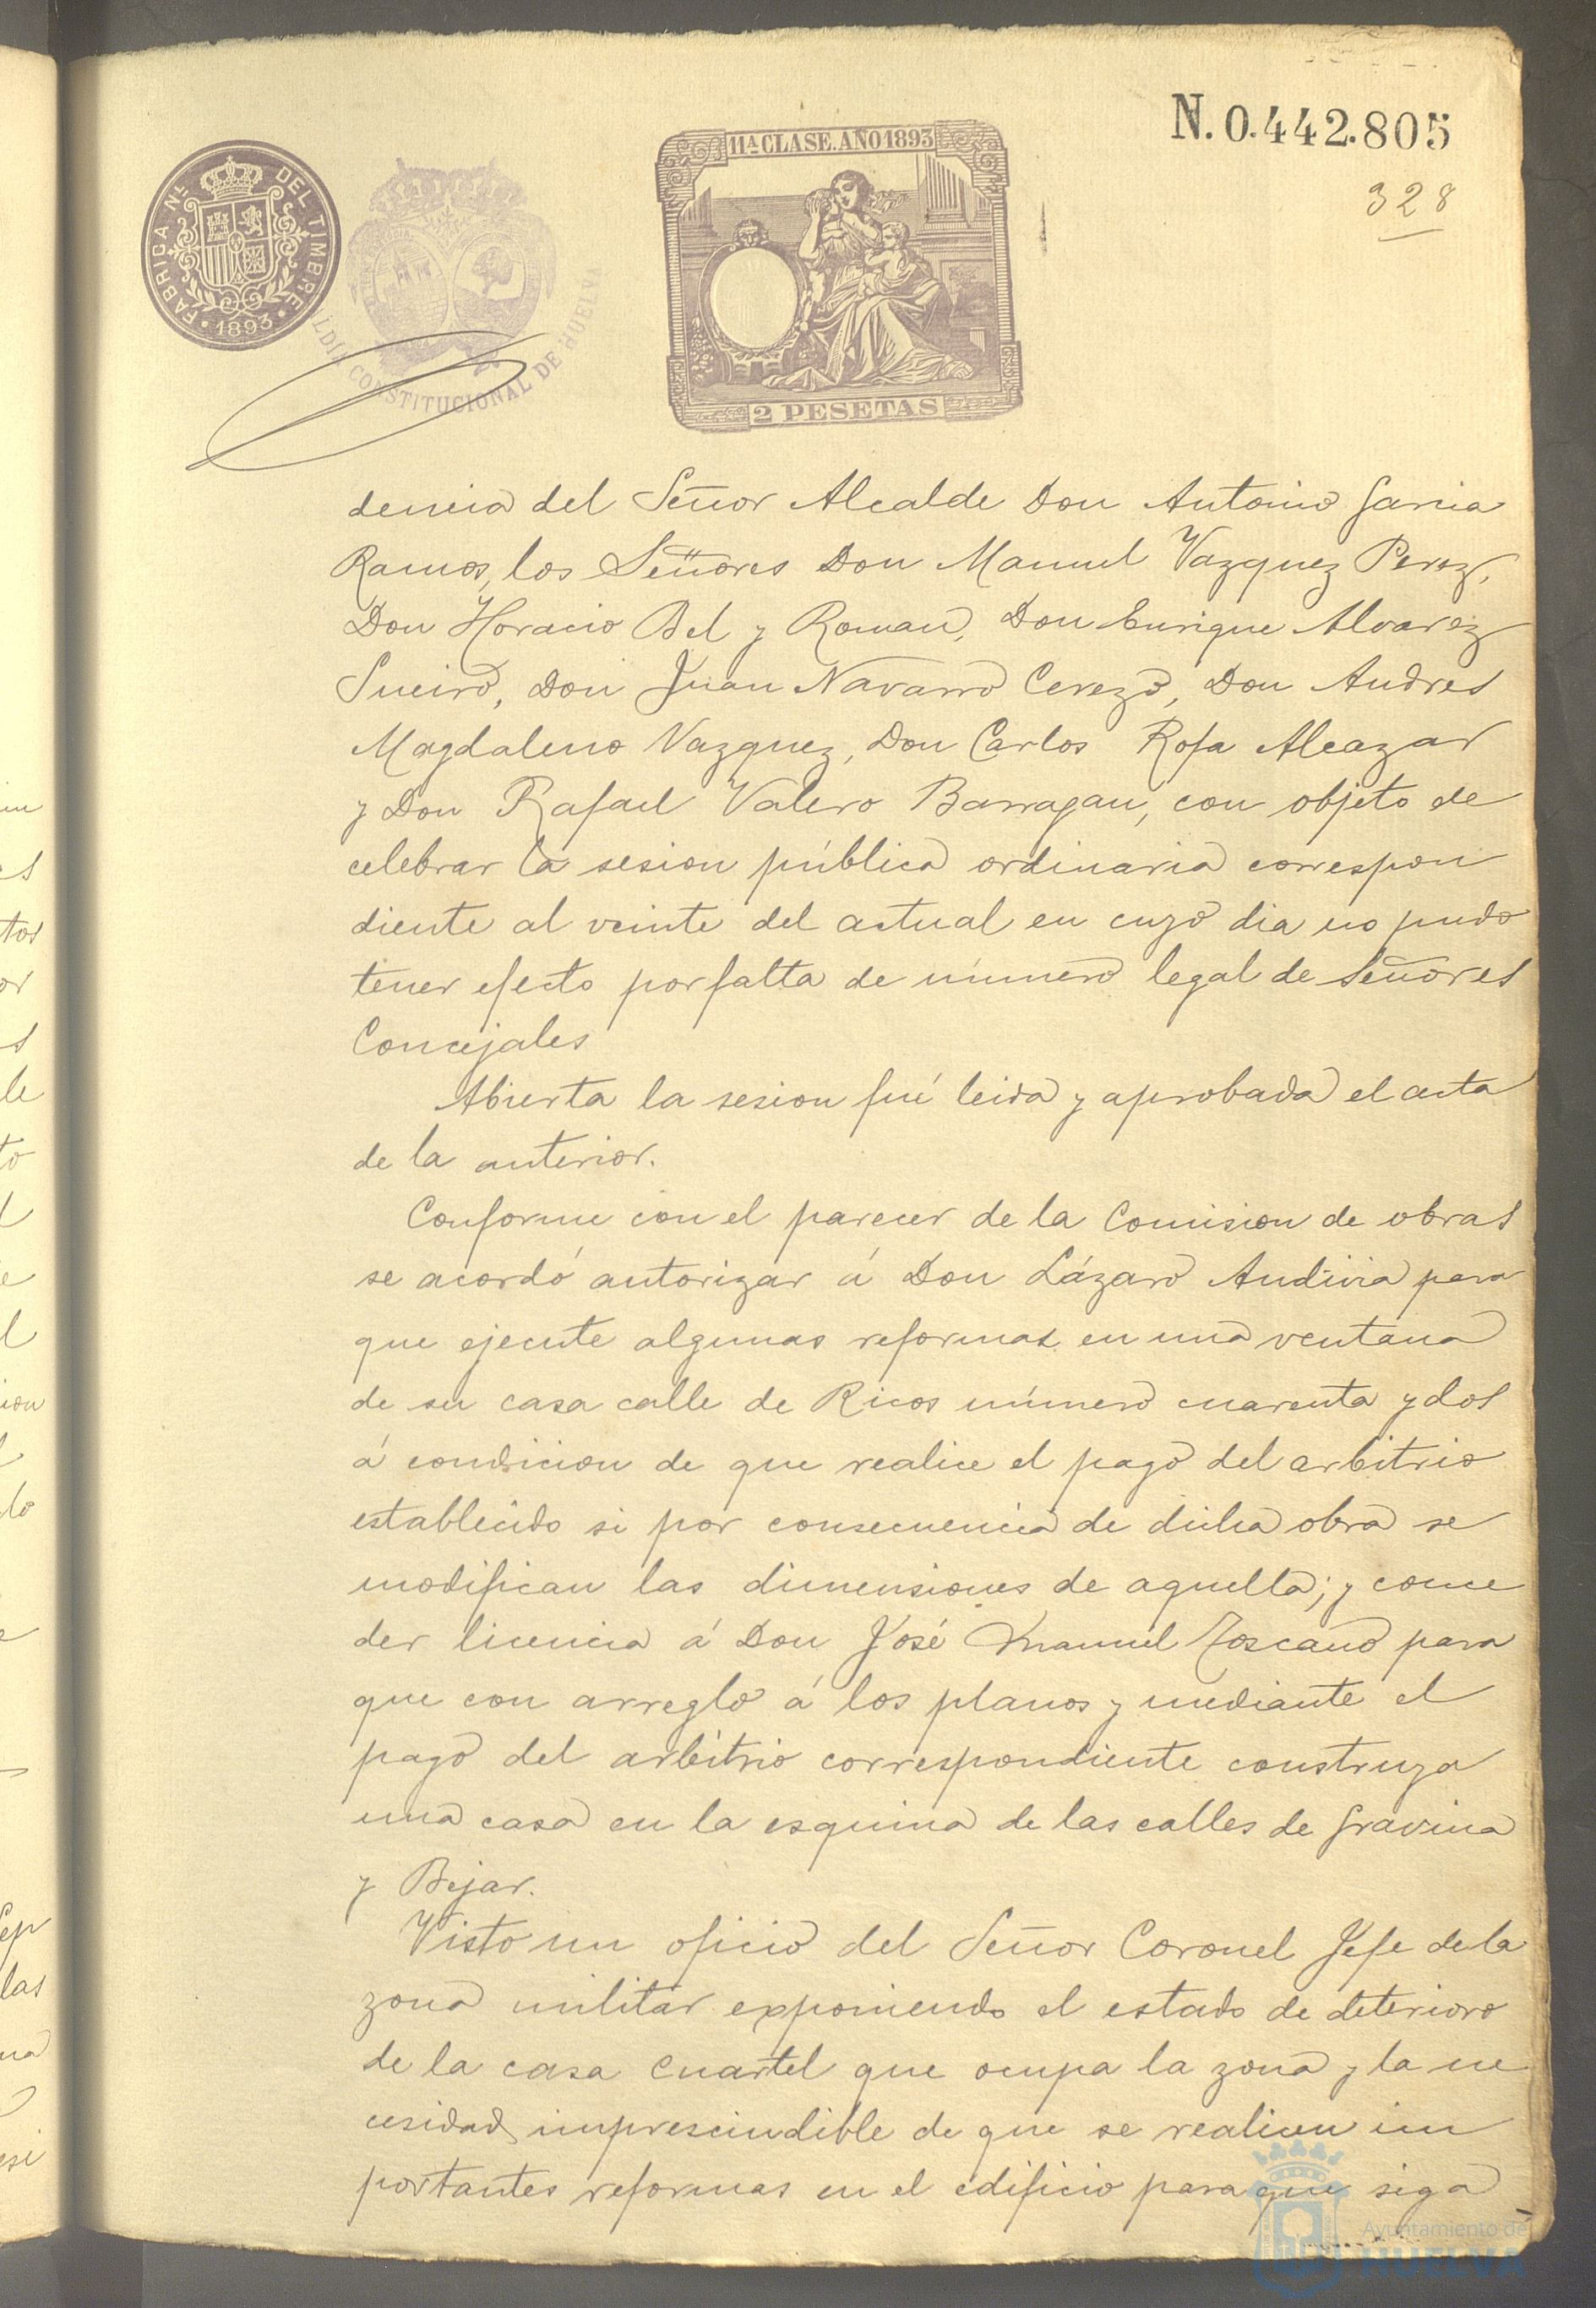 N. 0.442.805
328
FABRICA NL. DEL TIMBRE
1893
11ª CLASE. AÑO 1893
2 PESETAS
LDIA CONSTITUCIONAL DE HUELVA
dencia del Señor Alcalde Don Antonio Garcia
Ramos, los Señores Don Manuel Vazquez Perez,
Don Horacio Bel y Roman, Don Enrique Alvarez
Sueiro, Don Juan Navarro Cerezo, Don Andres
Magdaleno Vazquez, Don Carlos Rofa Alcazar
y Don Rafael Valero Barragan, con objeto de
celebrar la sesion pública ordinaria correspon
diente al veinte del actual en cuyo dia no pudo
tener efecto por falta de número legal de Señores
Concejales
Abierta la sesion fué leida y aprobada el acta
de la anterior.
Conforme con el parecer de la Comision de obras
se acordó autorizar á Don Lázaro Andivia para
que ejecute algunas reformas en una ventana
de su casa calle de Ricos número cuarenta y dos
á condicion de que realice el pago del arbitrio
establecido si por consecuencia de dicha obra se
modifican las dimensiones de aquella; y conce
der licencia á Don José Manuel Toscano para
que con arreglo á los planos y mediante el
pago del arbitrio correspondiente construya
una casa en la esquina de las calles de Gravina
y Bejar.
Visto un oficio del Señor Coronel Jefe de la
zona militar exponiendo el estado de deterioro
de la casa cuartel que ocupa la zona y la ne
cesidad imprescindible de que se realicen im
portantes reformas en el edificio para que siga
Ayuntamiento de
HUELVA